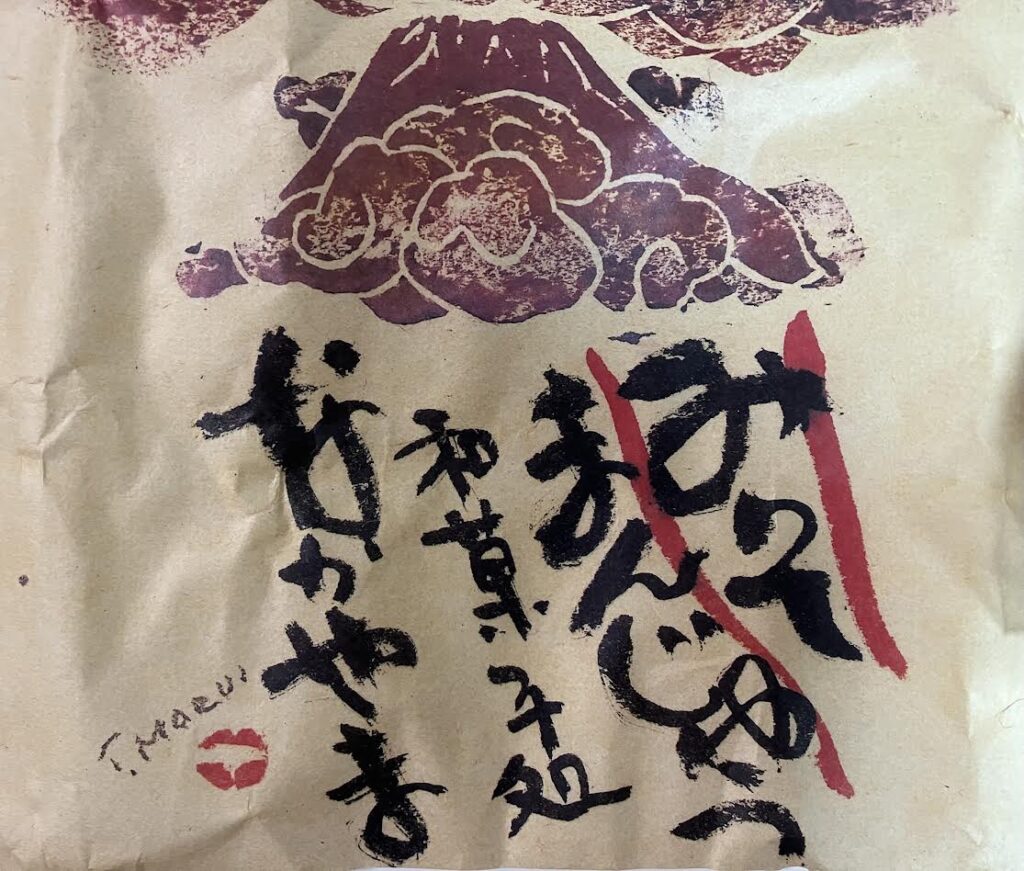 みそ
まんじゅう
和菓子処
なかやま
T. MARUI